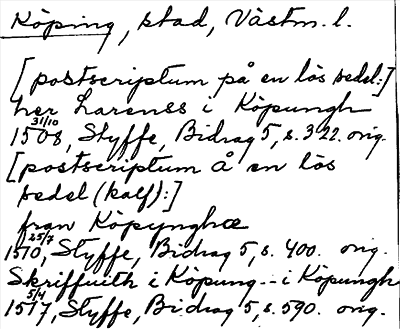 Köping, stad, Västm. l.
[postscriptum på en lös sedel:]
her Larenss i Köpungh
31/10
1508, Styffe, Bidrag 5, s. 322. orig.
[postscriptum å en lös
sedel (kalf):]
fran Köpynghæ
25/7
1510, Styffe, Bidrag 5, s. 400. orig.
Skriffuith i Köpung -- i Köpungh
5/4
1517, Styffe, Bidrag 5, s. 590. orig.